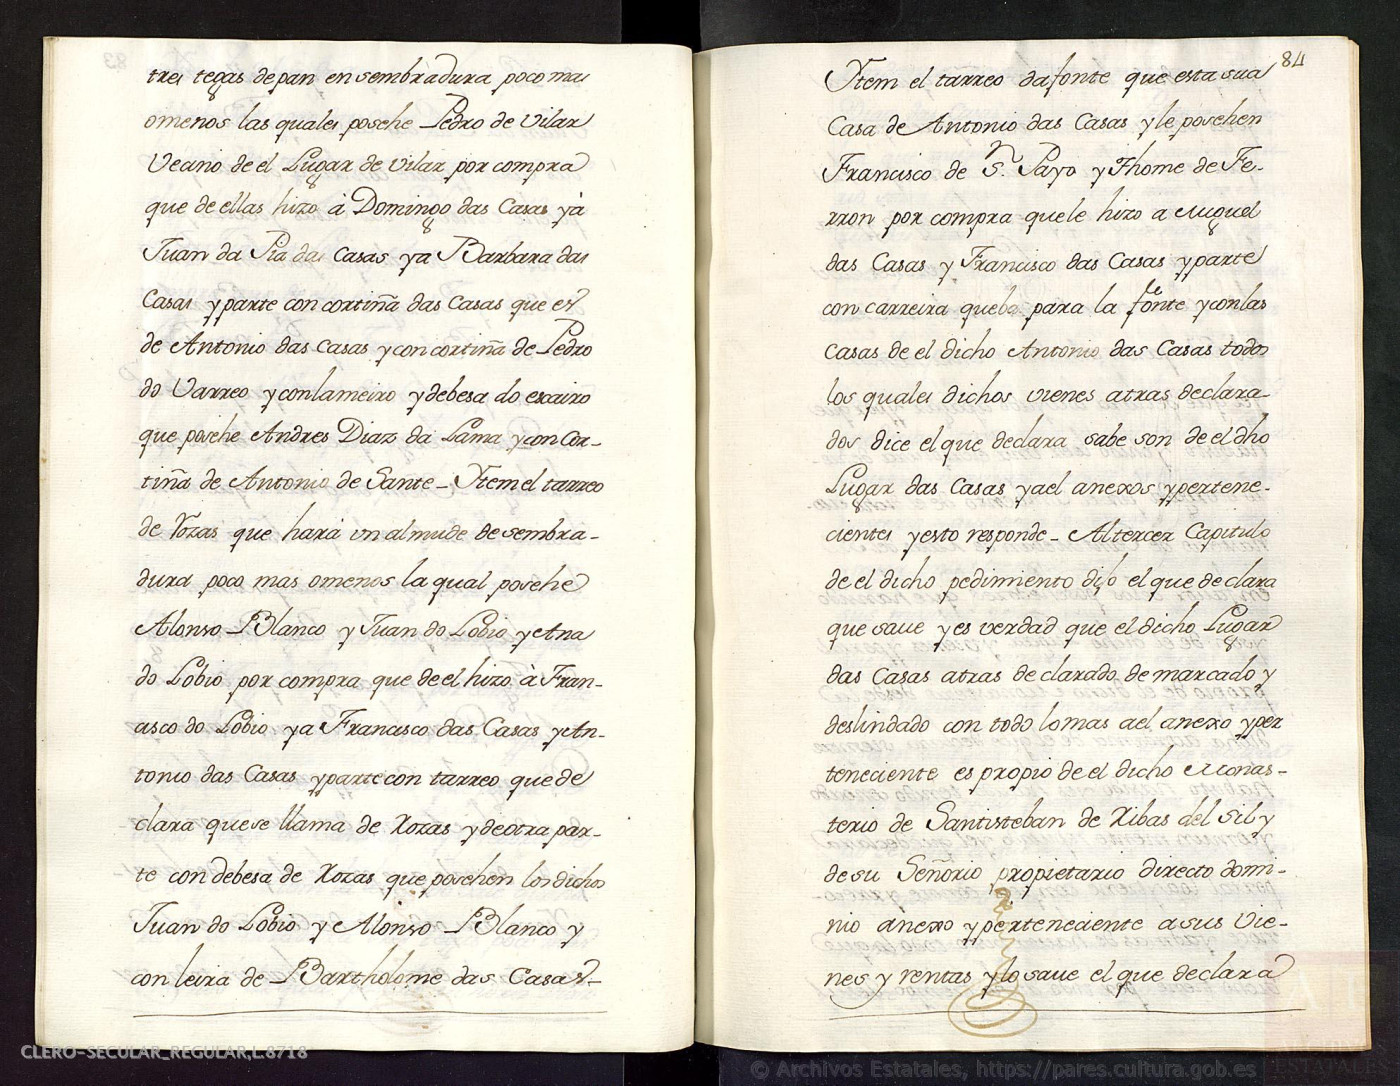 tres tegas de pan en sembradura poco mas
omenos las quales posehe Pedro de Vilar
Vecino de el Lugar de Vilar por compra
que de ellas hizo à Domingo das Casas yà
Juan da Pia das Casas ya Barbara das
Casas y parte con cortiña das Casas que es
de Antonio das Casas y con cortiña de Pedro
do Varreo y conlameiro y debesa do escairo
que posehe Andres Diaz da Lama y con Cor-
tiña de Antonio de Sante - Ytem el tarreo
de Rozas que harà un almude de sembra-
dura poco mas omenos la qual posehe
Alonso Blanco y Juan do Lobio y Ana
do Lobio por compra que de el hizo à Fran-
cisco do Lobio ya Francisco das Casas y An-
tonio das Casas y parte con tarreo que de
clara que se llama de Rozas y de otra par-
te con debesa de Rozas que posehen los dichos
Juan do Lobio y Alonso Blanco y
con leira de Bartholome das Casas -
84
Ytem el tarreo da fonte que esta sua
Casa de Antonio das Casas y le posehen
Francisco de S.n Payo y Thome de Fe-
rron por compra quele hizo a Miguel
das Casas y Francisco das Casas y parte
con carreira queba para la fonte y con las
Casas de el dicho Antonio das Casas todos
los quales dichos vienes atras declara-
dos dice el que declara sabe son de el dho
Lugar das Casas yael anexos y pertene-
cientes y esto responde - Al tercer Capitulo
de el dicho pedimiento dijo el que declara
que saue y es verdad que el dicho Lugar
das Casas atras declarado demarcado y
deslindado con todo lo mas ael anexo y per
teneciente es propio de el dicho Monas-
terio de Santisteban de Ribas del Sil y
de su Señorio propietario directo domi-
nio anexo y perteneciente a sus Vie-
nes y rentas y lo saue el que declara
CLERO-SECULAR_REGULAR,L.8718
© Archivos Estatales, https://pares.cultura.gob.es